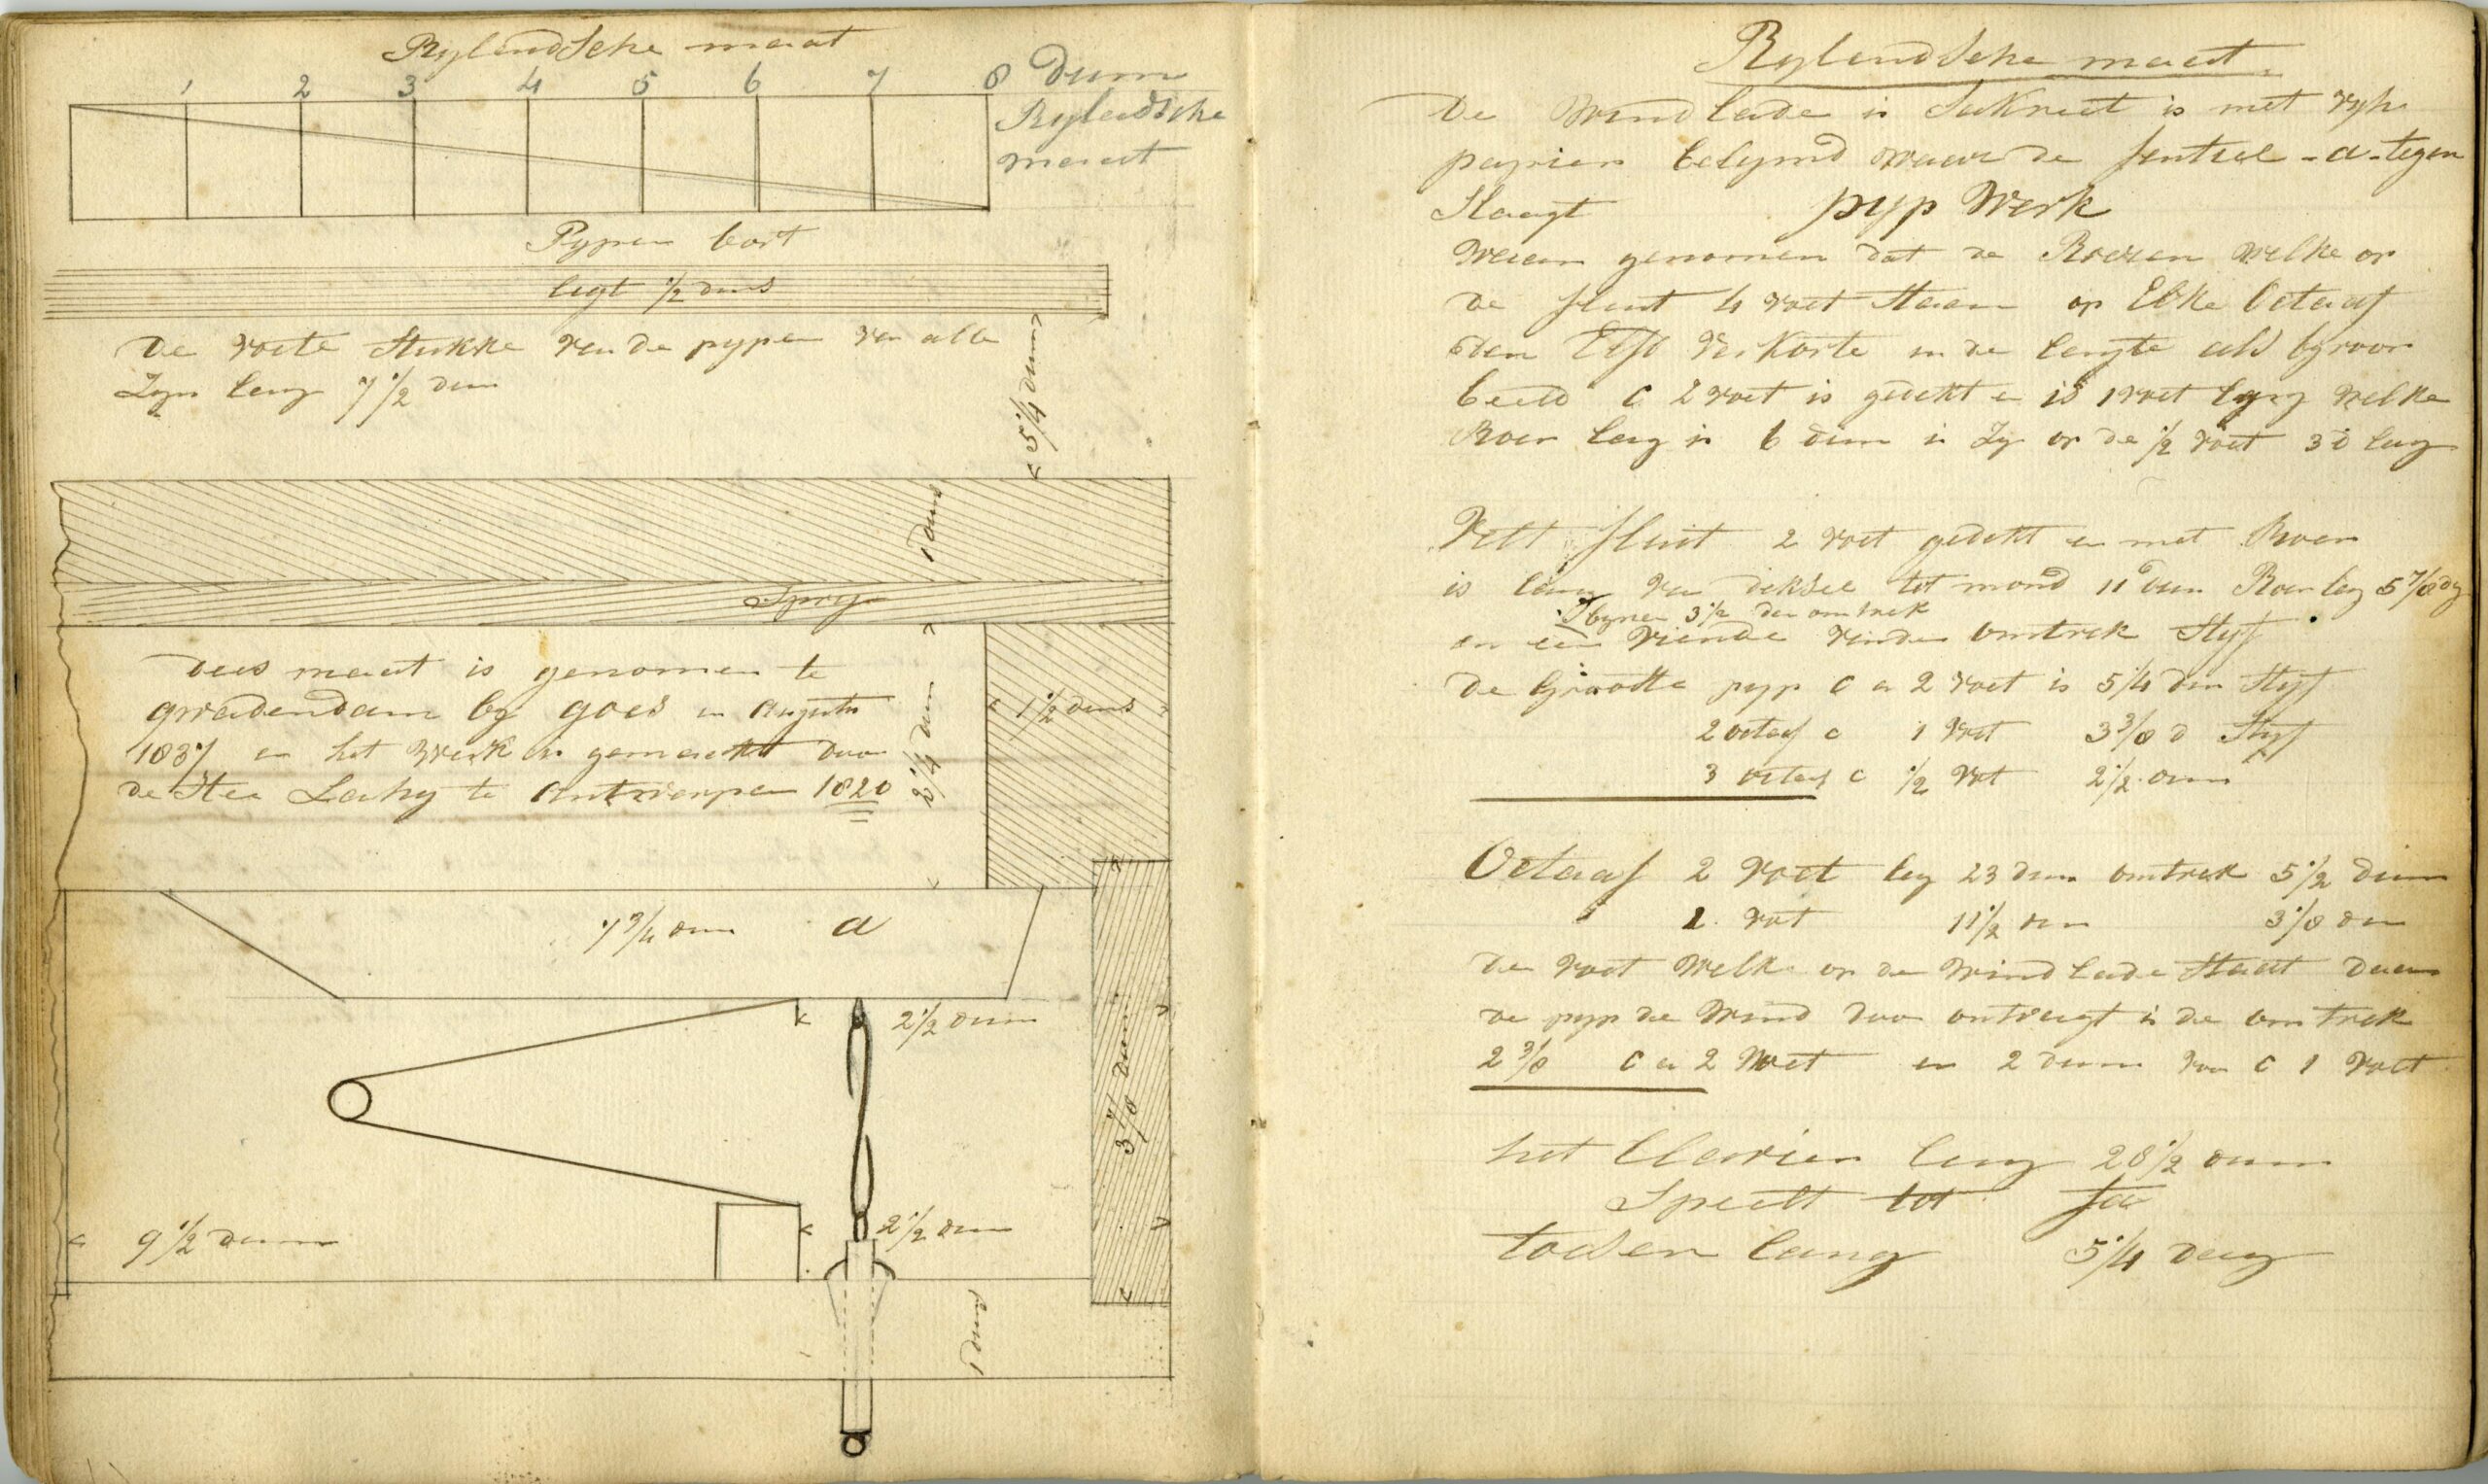 Rylendsche maat
1 2 3 4 5 6 7 8 dum
Rylendsche
maat
Pypen bort
legt 1/2 dum
De voete Stukke van de pypen van alle
Zyn lang 7 1/2 dum
5 1/4 dum
1 dum
dees maat is genomen te
gwadendam by goes in Augusts
1837 en het Werk is gemaekt door
te Antwerpen 1820
2 1/4 dum
1 1/2 dum
7 3/4 dum a
2 1/2 dum
3 7/8 dum
2 1/2 dum
9 1/2 dum
1 dum
Rylendsche maat
De Wind lade is is met
papier belymd waar de fentiel - a - tegen
Slaagt pyp Werk
genomen dat de Roeren welke op
de fluit 4 voet Staan op Elke Octaaf
den verkorte in de lengte als byvoor
beeld C 2 voet is gedekt en is 1 voet lang welke
Roer lang is 6 dum is Zy op de 1/2 voet 3 d lang
Velt fluit 2 voet gedekt en met Roer
is lang van deksel tot mond 11 dum Roer lang 5 7/8 dy
3 1/2 dum omtrek
en een omtrek Styf
De Groodte pyp C a 2 voet is 5 1/4 dum Styf
2 octaf c 1 voet 3 3/8 d Styf
3 octaf c 1/2 voet 2 1/2 dum
Octaaf 2 voet lang 23 dum omtrek 5 1/2 dum
1 voet 11 1/2 dum 3 1/8 dum
De voet Welk op de Wind lade Staat
de pyp de Wind door ontvangt is de omtrek
2 3/8 C a 2 Voet en 2 dum van C 1 Voet
het Clavier lang 28 1/2 dum
Speelt tot fa
toetsen lang 5 1/4